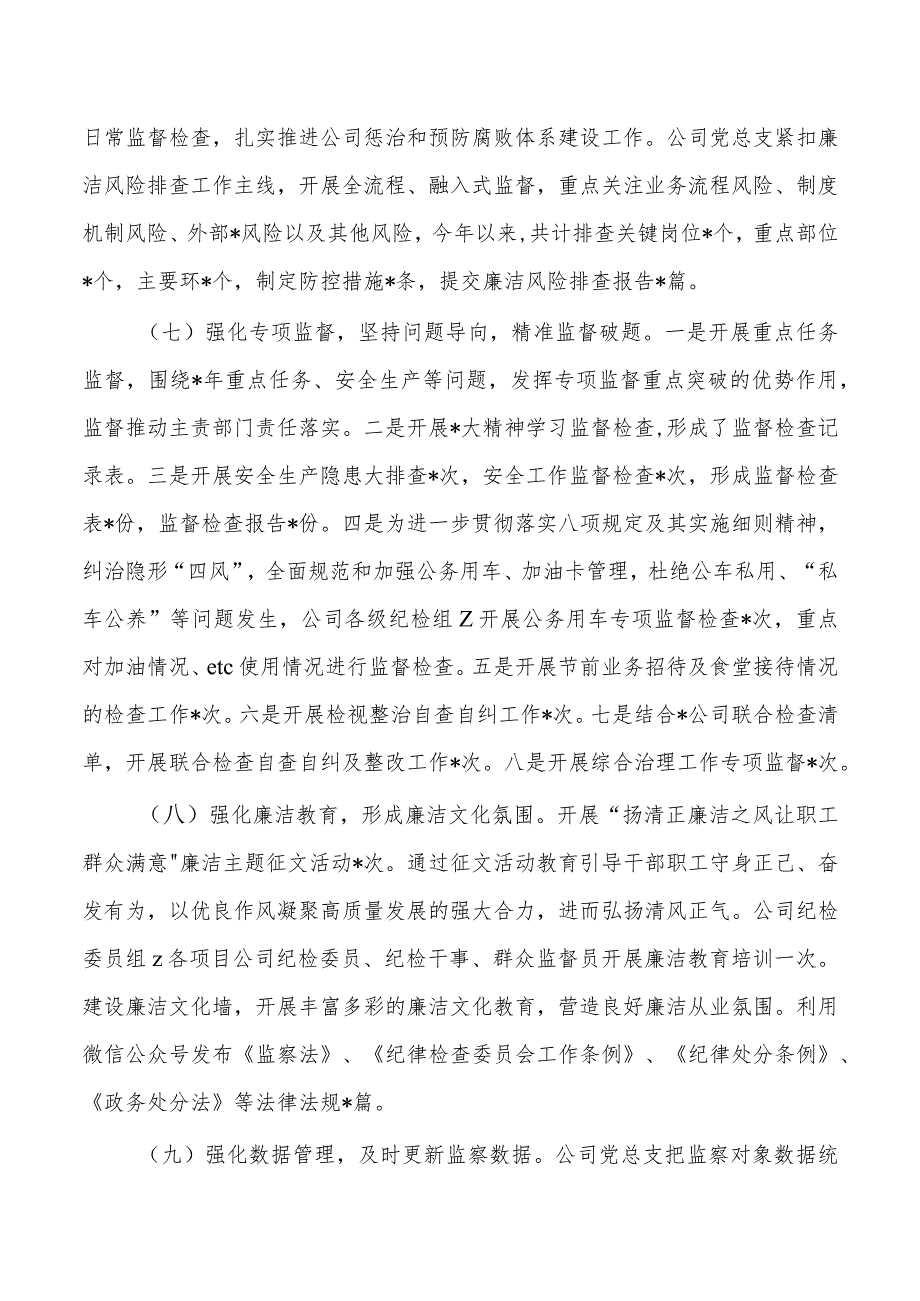 日常监督检查，扎实推进公司惩治和预防腐败体系建设工作。公司党总支紧扣廉
洁风险排查工作主线，开展全流程、融入式监督，重点关注业务流程风险、制度
机制风险、外部*风险以及其他风险，今年以来,共计排查关键岗位*个，重点部位
*个，主要环*个，制定防控措施*条，提交廉洁风险排查报告*篇。
（七）强化专项监督，坚持问题导向，精准监督破题。一是开展重点任务
监督，围绕*年重点任务、安全生产等问题，发挥专项监督重点突破的优势作用，
监督推动主责部门责任落实。二是开展*大精神学习监督检查,形成了监督检查记
录表。三是开展安全生产隐患大排查*次，安全工作监督检查*次，形成监督检查
表*份，监督检查报告*份。四是为进一步贯彻落实八项规定及其实施细则精神，
纠治隐形“四风”，全面规范和加强公务用车、加油卡管理，杜绝公车私用、“私
车公养”等问题发生，公司各级纪检组Z开展公务用车专项监督检查*次，重点
对加油情况、etc使用情况进行监督检查。五是开展节前业务招待及食堂接待情况
的检查工作*次。六是开展检视整治自查自纠工作*次。七是结合*公司联合检查清
单，开展联合检查自查自纠及整改工作*次。八是开展综合治理工作专项监督*次。
（八）强化廉洁教育，形成廉洁文化氛围。开展“扬清正廉洁之风让职工
群众满意"廉洁主题征文活动*次。通过征文活动教育引导干部职工守身正己、奋
发有为，以优良作风凝聚高质量发展的强大合力，进而弘扬清风正气。公司纪检
委员组z各项目公司纪检委员、纪检干事、群众监督员开展廉洁教育培训一次。
建设廉洁文化墙，开展丰富多彩的廉洁文化教育，营造良好廉洁从业氛围。利用
微信公众号发布《监察法》、《纪律检查委员会工作条例》、《纪律处分条例》、
《政务处分法》等法律法规*篇。
（九）强化数据管理，及时更新监察数据。公司党总支把监察对象数据统